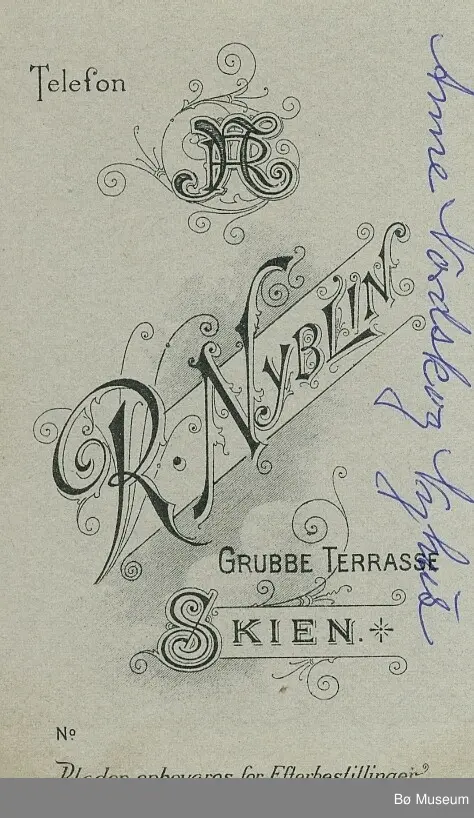 Telefon
NR
R. NYBLIN
GRUBBE TERRASSE
SKIEN.
Nº
Pladen opbevares for Efterbestillinger
Anne Nordskog Nyhus
Bø Museum